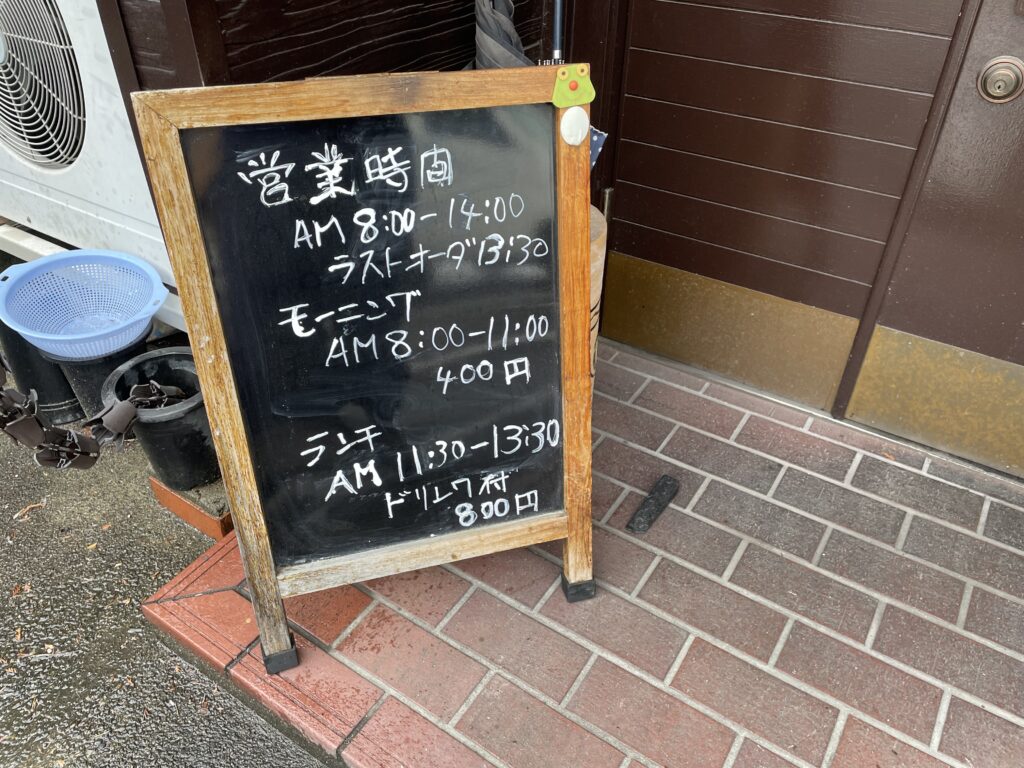 営業時間
AM 8:00-14:00
ラストオーダ13:30
モーニング
AM 8:00-11:00
400円
ランチ
AM 11:30-13:30
ドリンク付
800円